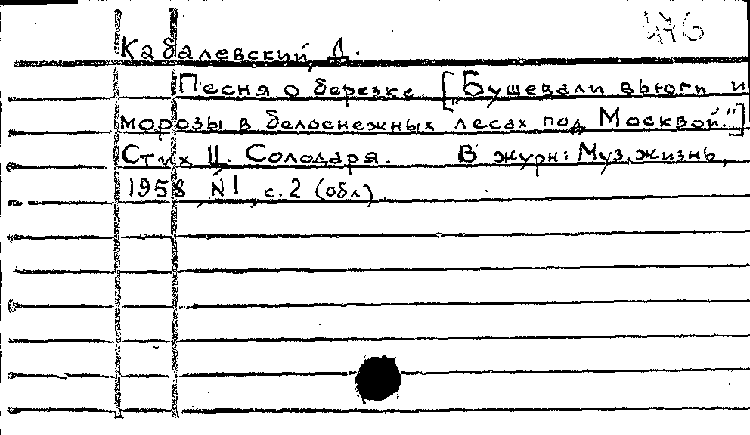 476
Кабалевский, Д.
Песня о березке ["Бушевали вьюги и
морозы в белоснежных лесах под Москвой."]
Стих Ц. Солодаря. В журн: Муз. жизнь,
1958, N1 с. 2 (обл)